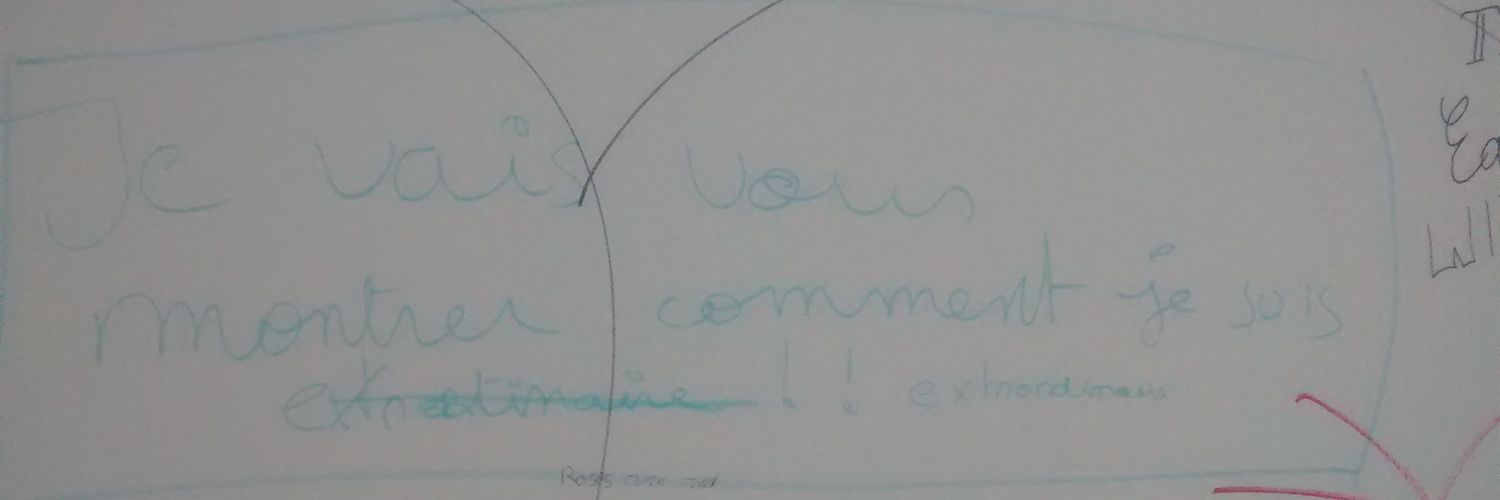 Je vais vous
montrer comment je suis
extraordinaire !! extraordinaire
Roses are red